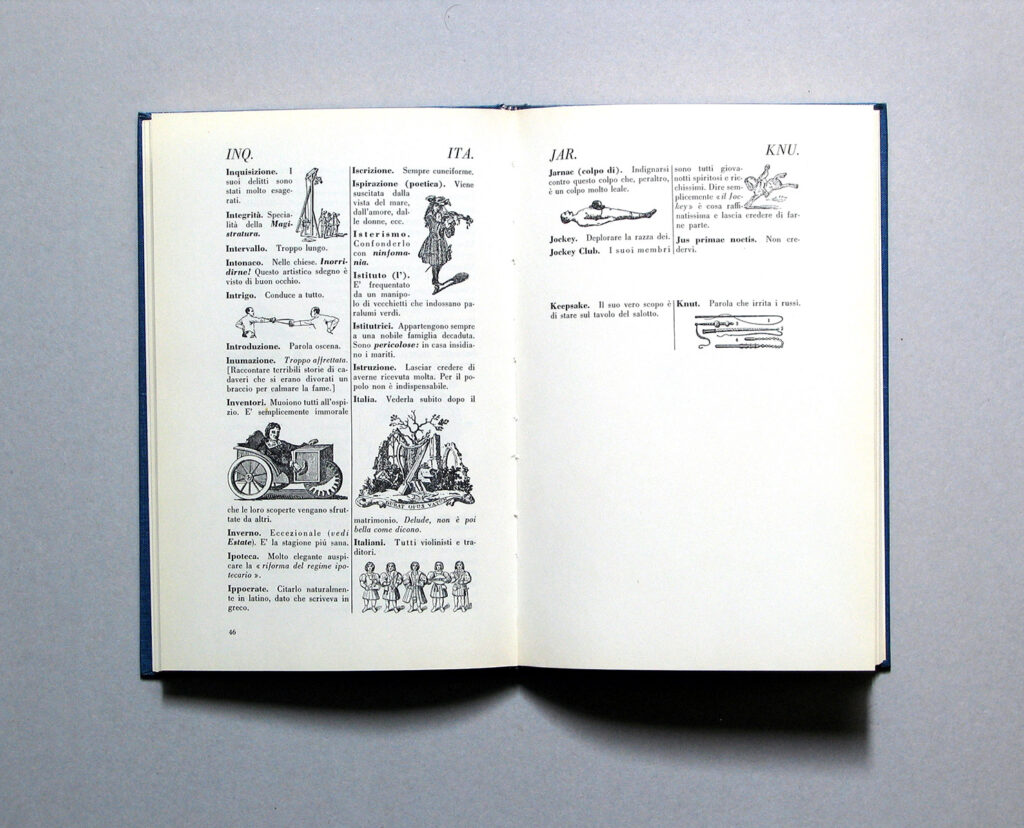 INQ.
ITA.
Inquisizione. I
suoi delitti sono
stati molto esage-
rati.
Integrità. Specia-
lità della Magi-
stratura.
Intervallo. Troppo lungo.
Intonaco. Nelle chiese. Inorri-
dirne! Questo artistico sdegno è
visto di buon occhio.
Intrigo. Conduce a tutto.
Introduzione. Parola oscena.
Inumazione. Troppo affrettata.
[Raccontare terribili storie di ca-
daveri che si erano divorati un
braccio per calmare la fame.]
Inventori. Muoiono tutti all'ospi-
zio. E' semplicemente immorale
che le loro scoperte vengano sfrut-
tate da altri.
Inverno. Eccezionale (vedi
Estate). E' la stagione piú sana.
Ipoteca. Molto elegante auspi-
care la « riforma del regime ipo-
tecario ».
Ippocrate. Citarlo naturalmen-
te in latino, dato che scriveva in
greco.
46
Iscrizione. Sempre cuneiforme.
Ispirazione (poetica). Viene
suscitata dalla
vista del mare,
dall'amore, dal-
le donne, ecc.
Isterismo.
Confonderlo
con ninfoma-
nia.
Istituto (l').
E' frequentato
da un manipo-
lo di vecchietti che indossano pa-
ralumi verdi.
Istitutrici. Appartengono sempre
a una nobile famiglia decaduta.
Sono pericolose: in casa insidia-
no i mariti.
Istruzione. Lasciar credere di
averne ricevuta molta. Per il po-
polo non è indispensabile.
Italia. Vederla subito dopo il
matrimonio. Delude, non è poi
bella come dicono.
Italiani. Tutti violinisti e tra-
ditori.
JAR.
KNU.
Jarnac (colpo di). Indignarsi
contro questo colpo che, peraltro,
è un colpo molto leale.
Jockey. Deplorare la razza dei.
Jockey Club. I suoi membri
sono tutti giova-
notti spiritosi e ric-
chissimi. Dire sem-
plicemente « il Joc-
key » è cosa raffi-
natissima e lascia credere di far-
ne parte.
Jus primae noctis. Non cre-
dervi.
Keepsake. Il suo vero scopo è
di stare sul tavolo del salotto.
Knut. Parola che irrita i russi.